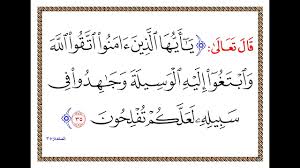 قَالَ تَعَالَى: ﴿يَٰٓأَيُّهَا ٱلَّذِينَ ءَامَنُوا۟ ٱتَّقُوا۟ ٱللَّهَ
وَٱبْتَغُوٓا۟ إِلَيْهِ ٱلْوَسِيلَةَ وَجَٰهِدُوا۟ فِى
سَبِيلِهِۦ لَعَلَّكُمْ تُفْلِحُونَ ٣٥﴾ المائدة: ٣٥